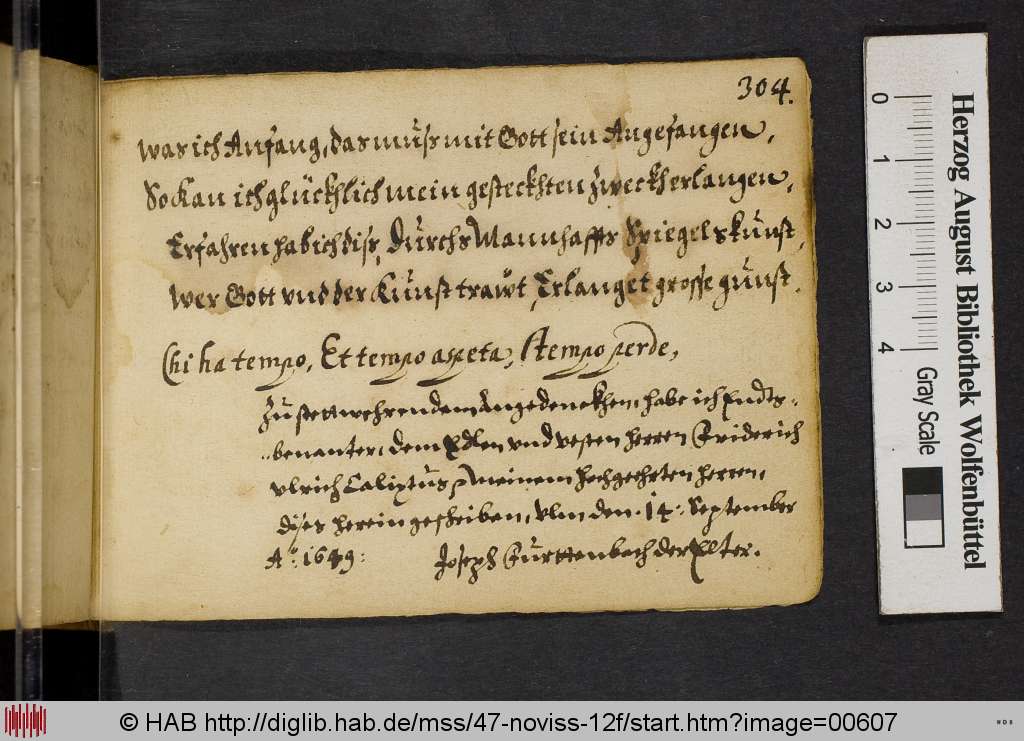 304.
Was ich Anfang, das muß mit Gott sein Angefangen,
So kan ich glückhlich mein gesteckhten zweckh erlangen,
Erfahren hab ich diß, durchs Mannhaffts Spiegels kunst,
Wer Gott und der Kunst trawt, Erlanget grosse gunst.
Chi ha tempo, Et tempo aspeta, Il tempo perde,
Zu stettwehrendem Angedenckhen, habe ich Endts-
benanter, dem Edlen und vesten Herren Friderich
Ulrich Calixtus, Meinem hochgeehrten herren,
dises herein geschriben, Ulm den 14: September
A°: 1649: Joseph Furttenbach der Ellter.
0 1 2 3 4
Gray Scale
Herzog August Bibliothek Wolfenbüttel
© HAB http://diglib.hab.de/mss/47-noviss-12f/start.htm?image=00607